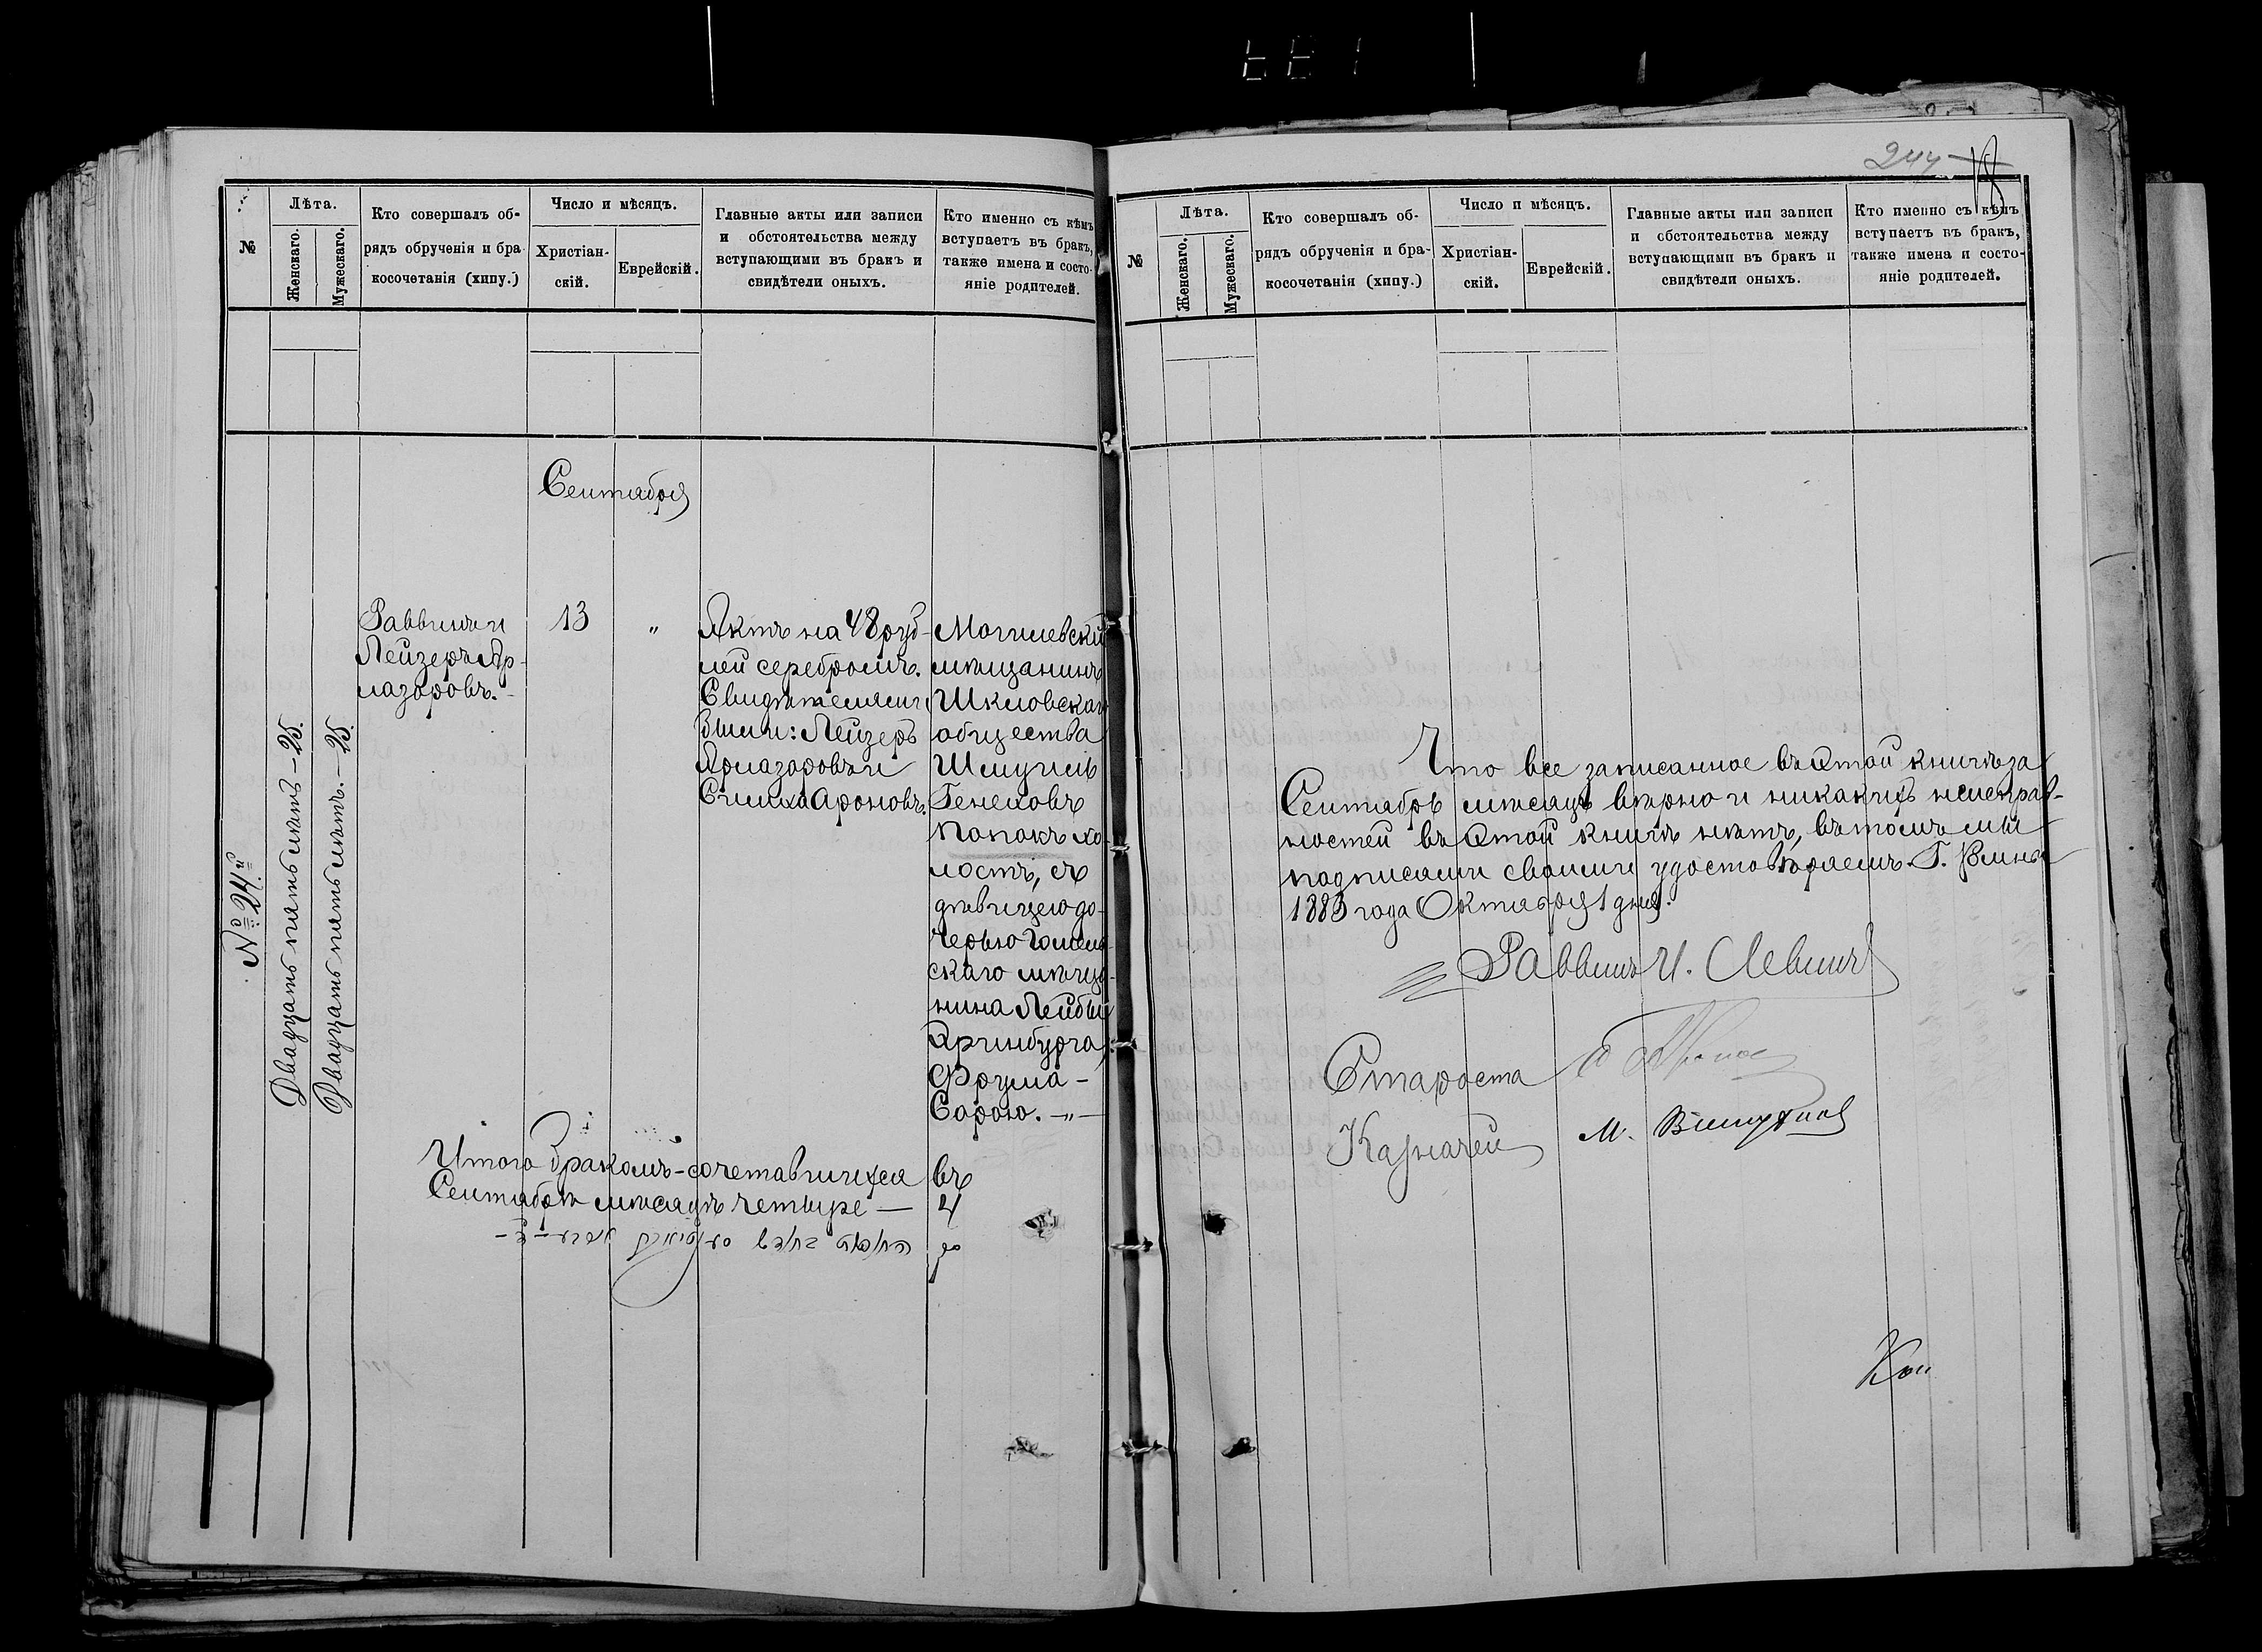 №
Лѣта.
Женскаго.
Мужескаго.
Кто совершалъ об-
рядъ обрученія и бра
косочетанія (хипу.)
Число и мѣсяцъ.
Христіан-
скій.
Еврейскій.
Главные акты или записи
и обстоятельства между
вступающими въ бракъ и
свидѣтели оныхъ.
Кто именно съ кѣмъ
вступаетъ въ бракъ,
также имена и состо-
яніе родителей.
Сентября
№ 24й
Двадцать пять лѣтъ – 25.
Двадцать пять лѣтъ. – 25.
Раввинъ и
Лейзеръ Ар-
лазоровъ.
13
"
Актъ на 48 руб-
лей серебромъ.
Свидѣтелями
были: Лейзеръ
Арлазоровъ и
Симха Ароновъ.
Могилевскій
мѣщанинъ
Шкловскаго
общества
Шмуилъ
Генеховъ
Попокъ хо-
лостъ, съ
дѣвицею до-
черью Гомель-
скаго мѣща-
нина Лейбы
Гринбурга,
Фрума –
Сорою. –"–
Итого бракомъ-сочетавшихся въ
Сентябрѣ мѣсяцѣ четыре — 4
244
18
№
Лѣта.
Женскаго.
Мужескаго.
Кто совершалъ об-
рядъ обрученія и бра-
косочетанія (хипу.)
Число и мѣсяцъ.
Христіан-
скій.
Еврейскій.
Главные акты или записи
и обстоятельства между
вступающими въ бракъ и
свидѣтели оныхъ.
Кто именно съ кѣмъ
вступаетъ въ бракъ,
также имена и состо-
яніе родителей.
Что все записанное въ этой книгѣ за
Сентябрь мѣсяцъ вѣрно и никакихъ неисправ-
ностей въ этой книгѣ нѣтъ, въ томъ мы
подписами своими удостовѣряемъ. Г.
1883 года Октября 1 дня.
Раввинъ И. Левинъ
Староста
Казначей М.